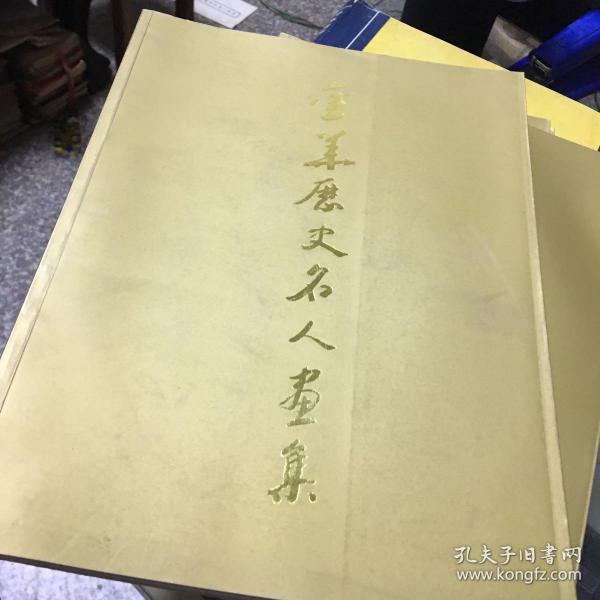 金華歷史名人畫集
孔夫子旧書网
www.kongfz.com